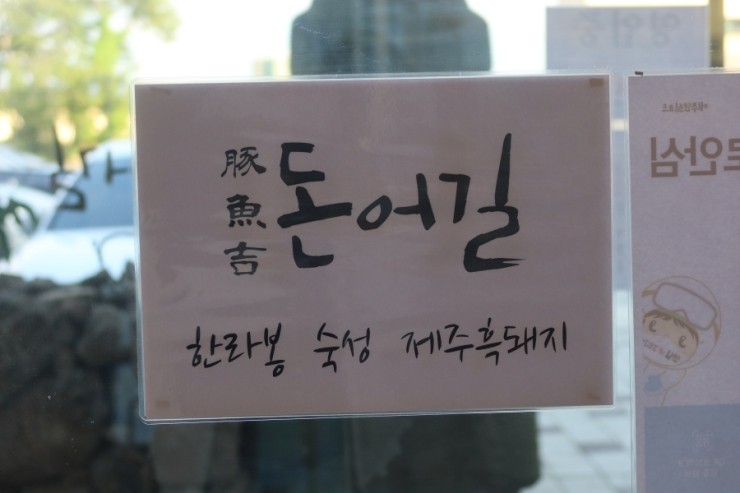 豚魚吉
돈어길
한라봉 숙성 제주흑돼지
안심